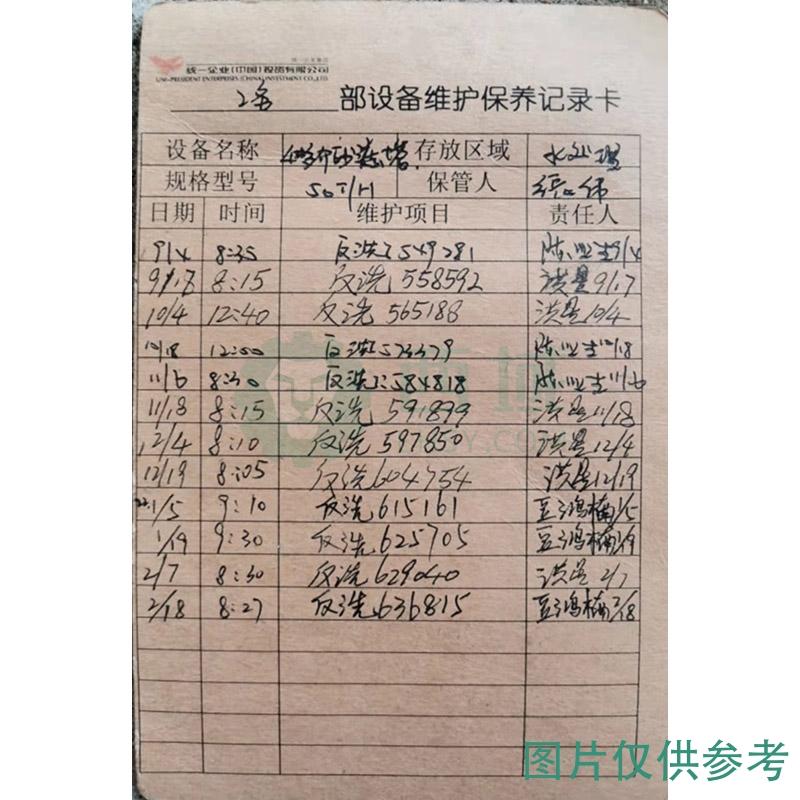 统一企业(中国)投资有限公司
UNI-PRESIDENT ENTERPRISES (CHINA) INVESTMENT CO.,LTD.
部设备维护保养记录卡
设备名称 存放区域 水处理
规格型号 50T/H 保管人
日期 时间 维护项目 责任人
9/4 8:35 反洗 549281 9/4
9/17 8:15 反洗 558592 洪星 9/17
10/4 12:40 反洗 565188 洪星 10/4
10/18 12:00 反洗 10/18
11/6 8:30 反洗 584818 11/6
11/18 8:15 反洗 591899 洪星 11/18
12/4 8:10 反洗 597850 洪星 12/4
12/19 8:05 反洗 604754 洪星 12/19
22.1/5 9:10 反洗 615161 豆鸿楠 1/5
1/19 9:30 反洗 625705 豆鸿楠 1/19
2/7 8:30 反洗 629040 洪星 2/7
2/18 8:27 反洗 636815 豆鸿楠 2/18
图片仅供参考